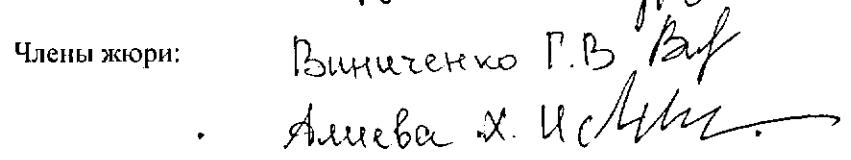 Члены жюри: Виниченко Г.В
Алиева Х. И